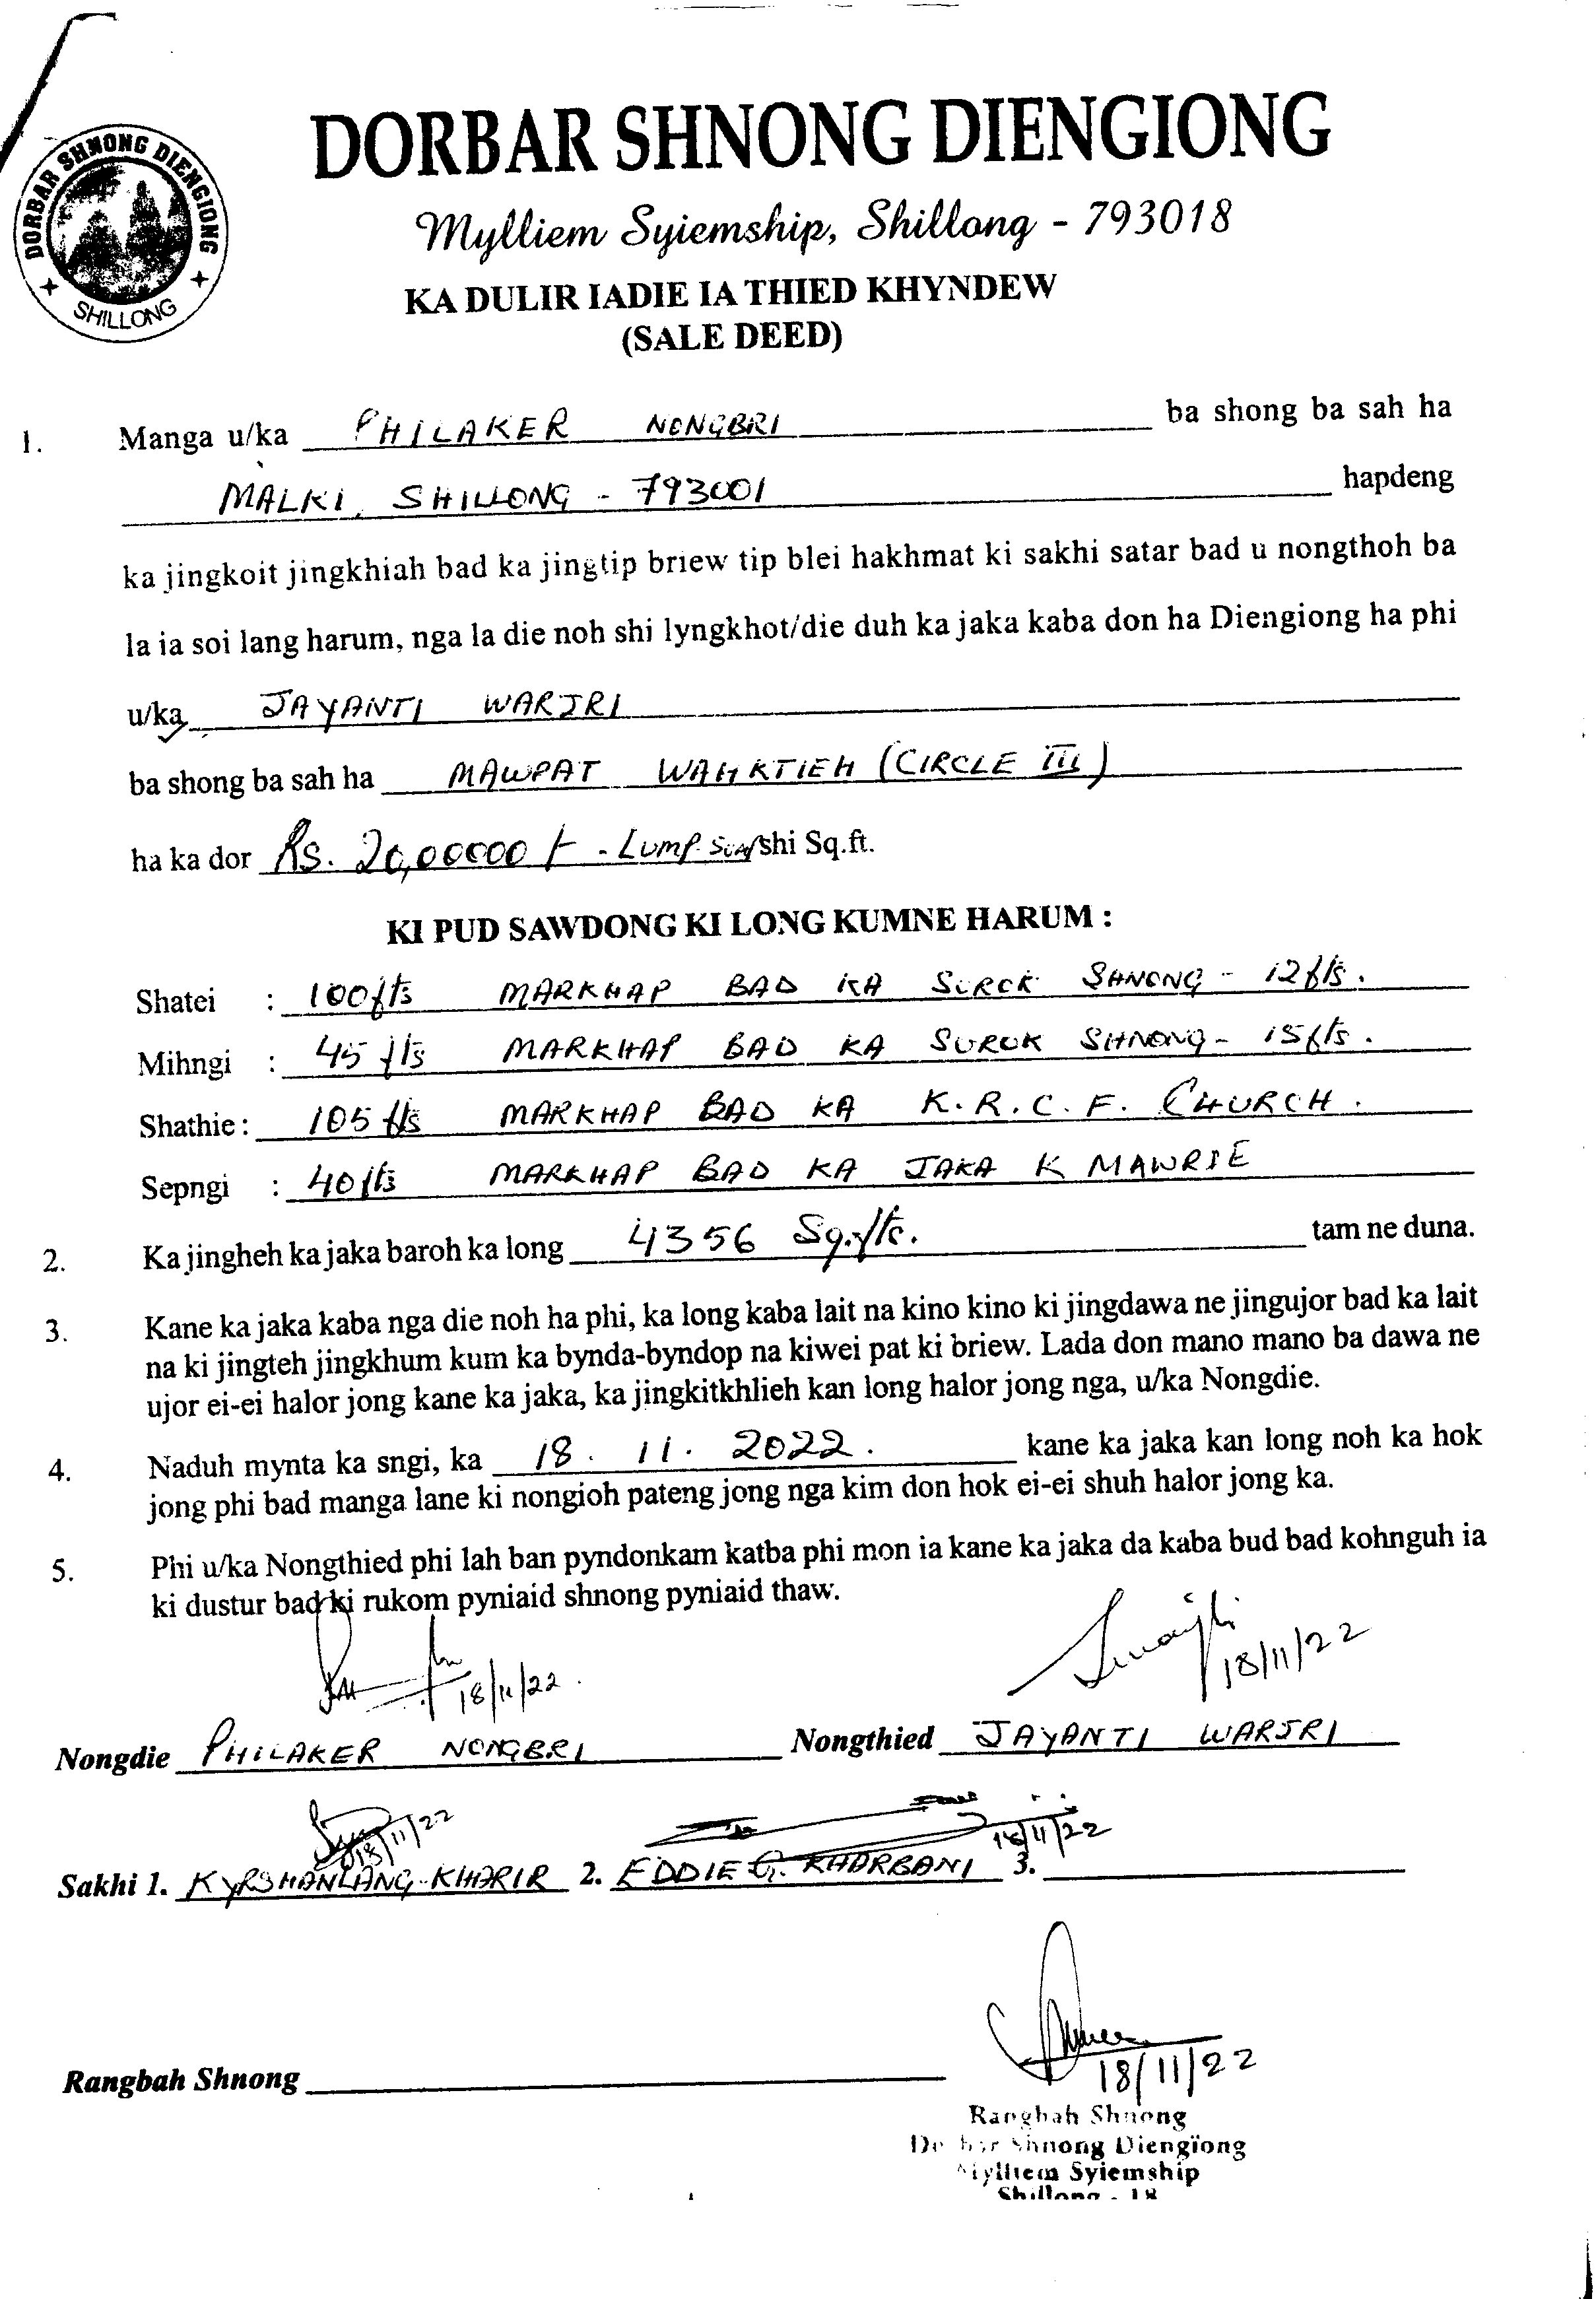 DORBAR SHNONG DIENGIONG
SHILLONG
DORBAR SHNONG DIENGIONG
Mylliem Syiemship, Shillong - 793018
KA DULIR IADIE IA THIED KHYNDEW
(SALE DEED)
1. Manga u/ka PHILAKER NONGBRI ba shong ba sah ha
MALKI, SHILLONG - 793001 hapdeng
ka jingkoit jingkhiah bad ka jingtip briew tip blei hakhmat ki sakhi satar bad u nongthoh ba
la ia soi lang harum, nga la die noh shi lyngkhot/die duh ka jaka kaba don ha Diengiong ha phi
u/ka JAYANTI WARJRI
ba shong ba sah ha MAWPAT WAHKTIEH (CIRCLE III)
ha ka dor Rs. 20,00000/- - LUMP SUM shi Sq.ft.
KI PUD SAWDONG KI LONG KUMNE HARUM :
Shatei : 100fts MARKHAP BAD KA SUROK SHNONG - 12fts.
Mihngi : 45 fts MARKHAP BAD KA SUROK SHNONG - 15fts.
Shathie : 105 fts MARKHAP BAD KA K.R.C.F. CHURCH.
Sepngi : 40fts MARKHAP BAD KA JAKA K MAWRIE
2. Ka jingheh ka jaka baroh ka long 4356 Sq.fts. tam ne duna.
3. Kane ka jaka kaba nga die noh ha phi, ka long kaba lait na kino kino ki jingdawa ne jingujor bad ka lait
na ki jingteh jingkhum kum ka bynda-byndop na kiwei pat ki briew. Lada don mano mano ba dawa ne
ujor ei-ei halor jong kane ka jaka, ka jingkitkhlieh kan long halor jong nga, u/ka Nongdie.
4. Naduh mynta ka sngi, ka 18. 11. 2022. kane ka jaka kan long noh ka hok
jong phi bad manga lane ki nongioh pateng jong nga kim don hok ei-ei shuh halor jong ka.
5. Phi u/ka Nongthied phi lah ban pyndonkam katba phi mon ia kane ka jaka da kaba bud bad kohnguh ia
ki dustur bad ki rukom pyniaid shnong pyniaid thaw.
18/11/22. 18/11/22
Nongdie PHILAKER NONGBRI Nongthied JAYANTI WARJRI
18/11/22 18/11/22
Sakhi 1. KYRSHANLANG KHARIR 2. EDDIE G. KHARBANI 3.
Rangbah Shnong
18/11/22
Rangbah Shnong
Dorbar Shnong Diengiong
Mylliem Syiemship
Shillong - 18